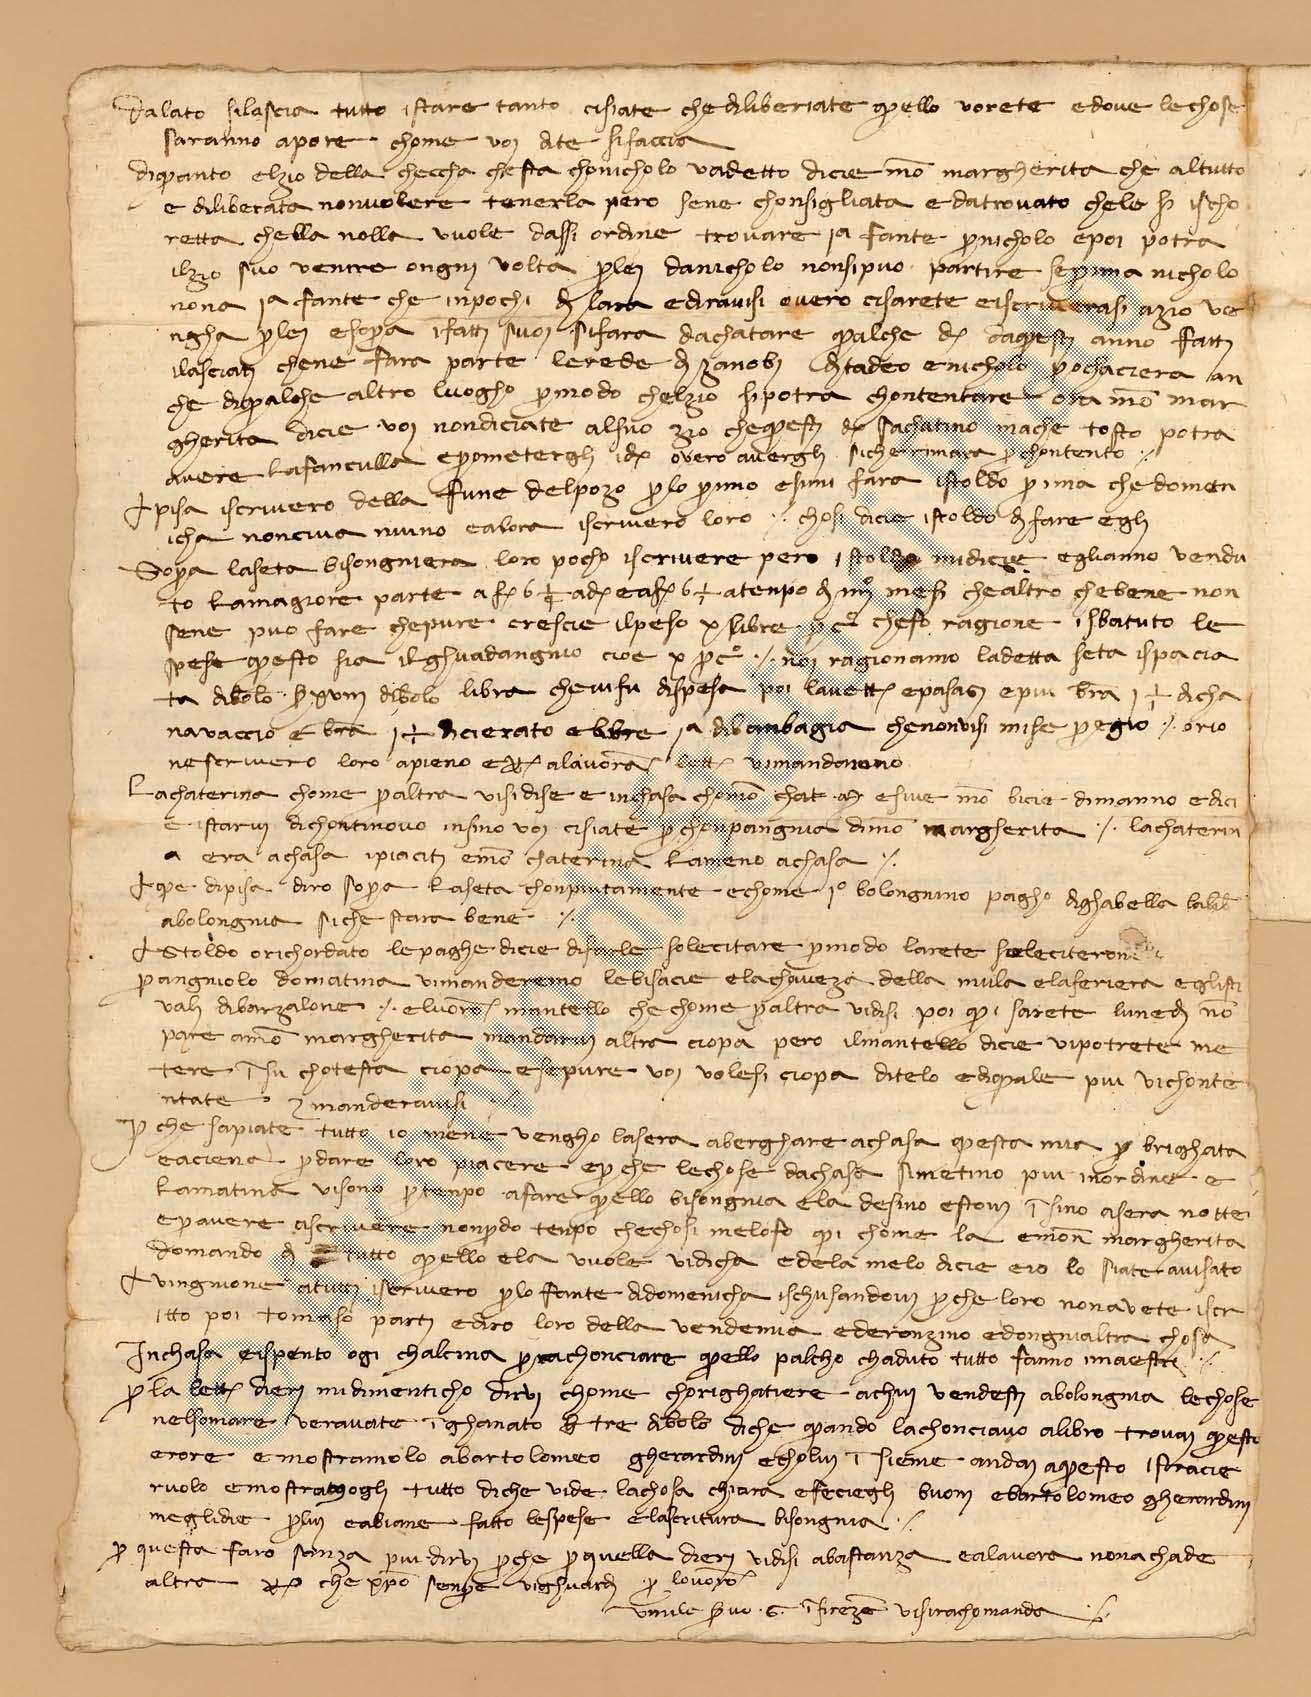 dalato silascia tutto istare tanto cisiate che diliberiate quello vorete edove lechose
saranno apore chome voi dite sifaccia
diquanto elzio della checcha chesta chonicholo vadetto dicie mō margherita che altutto
e diliberata nonvolere tenerla pero sene chonsigliata e datrovato chele si ischo
retta chella nolla vuole dassi ordine trovare jª fante p nicholo epoi potra
ilzio suo venire ongni volta plei danicholo nonsipuo partire seprima nicholo
nona jª fante che inpochi di lara ediravisi overo cisarete eiscriverasi azio ve
ngha plei esopra ifatti suoi sifara dachatare qualche d daquesti anno fatti
ilasciati chene fara parte lerede di zanobi di tadeo enicholo pochaciera an
che diqualche altro luogho pmodo chelzio sipotra chontentare ora mō mar
gherita dicie voi nondiciate alsuo zio chequesti d sachatino mache tosto potra
avere lafanculla eprometergli i d overo avergli siche rimara pchontento
pisa iscrivero della fune delpozo plo primo esimi fara istoldo prima che domen
icha nonciva niuno ealora iscrivero loro chosi dicie istoldo di fare egli
Sopra laseta bisongniera loro pocho iscrivere pero istoldo midicie eglianno vendu
to lamagiore parte a 6 ad eaf 6 atenpo di iiij mesi chealtro chebene non
sene puo fare chepure crescie ilpeso x libre pcº cheso ragione isbatuto le
spese questo sia ilghuadangnio cioe x pcº noi ragionamo ladetta seta ispacia
ta dibolo xviij dibolo libra chevisu dispesa poi lavett epasagi epiu bra j dicha
navaccio e bra j dicierato ebbre jª dibanbagia chenonvisi mise pegio orio
nescrivero loro apieno e alavorā lett vimandaneno
Lachaterina chome paltra visidise e inchasa chomō chat esive mō bicie dimanno edici
e istarvi dichontinovo insino voi cisiate pchonpangnia dimō margherita lachaterin
a era achasa ipiaciti emō chaterina lameno achasa
que dipisa diro sopra laseta chonpiutamente echome jº bolongnino pagho dighabella lalib
abolongnia siche stara bene
Stoldo orichordato lepaghe dicie difarle solecitare pmodo larete soleciteron
pangniolo domatina vimanderemo lebisacie elachaveza della mula elaferiera eglisti
vali dibarzalone elvorō mantello che chome paltra vidisi poi qui sarete lunedi nō
pare amō margherita mandarvi altra ciopa pero ilmantello dicie vipotrete me
tere īsu chotesta ciopa esepure voi volesi ciopa ditelo ediquale piu vichonte
ntate manderavisi
pche sapiate tutto io mene vengho lasera aberghare achasa questa mia p brighata
eaciena pdare loro piacere epche lechose dachasa simetino piu inordine e
lamatina visono ptenpo afare quello bisongnia ela desino estovi īsino asera notte
epavere aiscrivere nonpdo tenpo chechosi melofo qui chome la emonā margherita
domando di tutto quello ela vuole vidicha edela melo dicie eio lo siate avisato
vingnione atutti iscrivero plo fante didomenicha ischusandovi pche loro nonavete iscr
itto poi tomaso parti ediro loro della vendemia ederonzino edongnialtra chosa
Inchasa eispento ogi chalcina prachonciare quello palcho chaduto tutto fanno imaestri
pla lett dieri midimenticho dirvi chome chorighatiere achui vendesti abolongnia lechose
nelsomare veravate īghanato tre dibolo diche quando lachonciavo alibro trovai questo
erore emostramolo abartolomeo gherardini echolui īsieme andai aquesto istracie
ruolo emostramogli tutto diche vide lachosa chiara efeciegli buoni ebartolomeo gherardini
meglidie plui eabiane fatto lespese elascritura bisongnia
p questa faro sanza piu dirvi pche pquella dieri vidisi abastanza ealavera nonachade
altra che xpō senpre vighuardi p lovorō
vmile s īfirēze visirachomanda